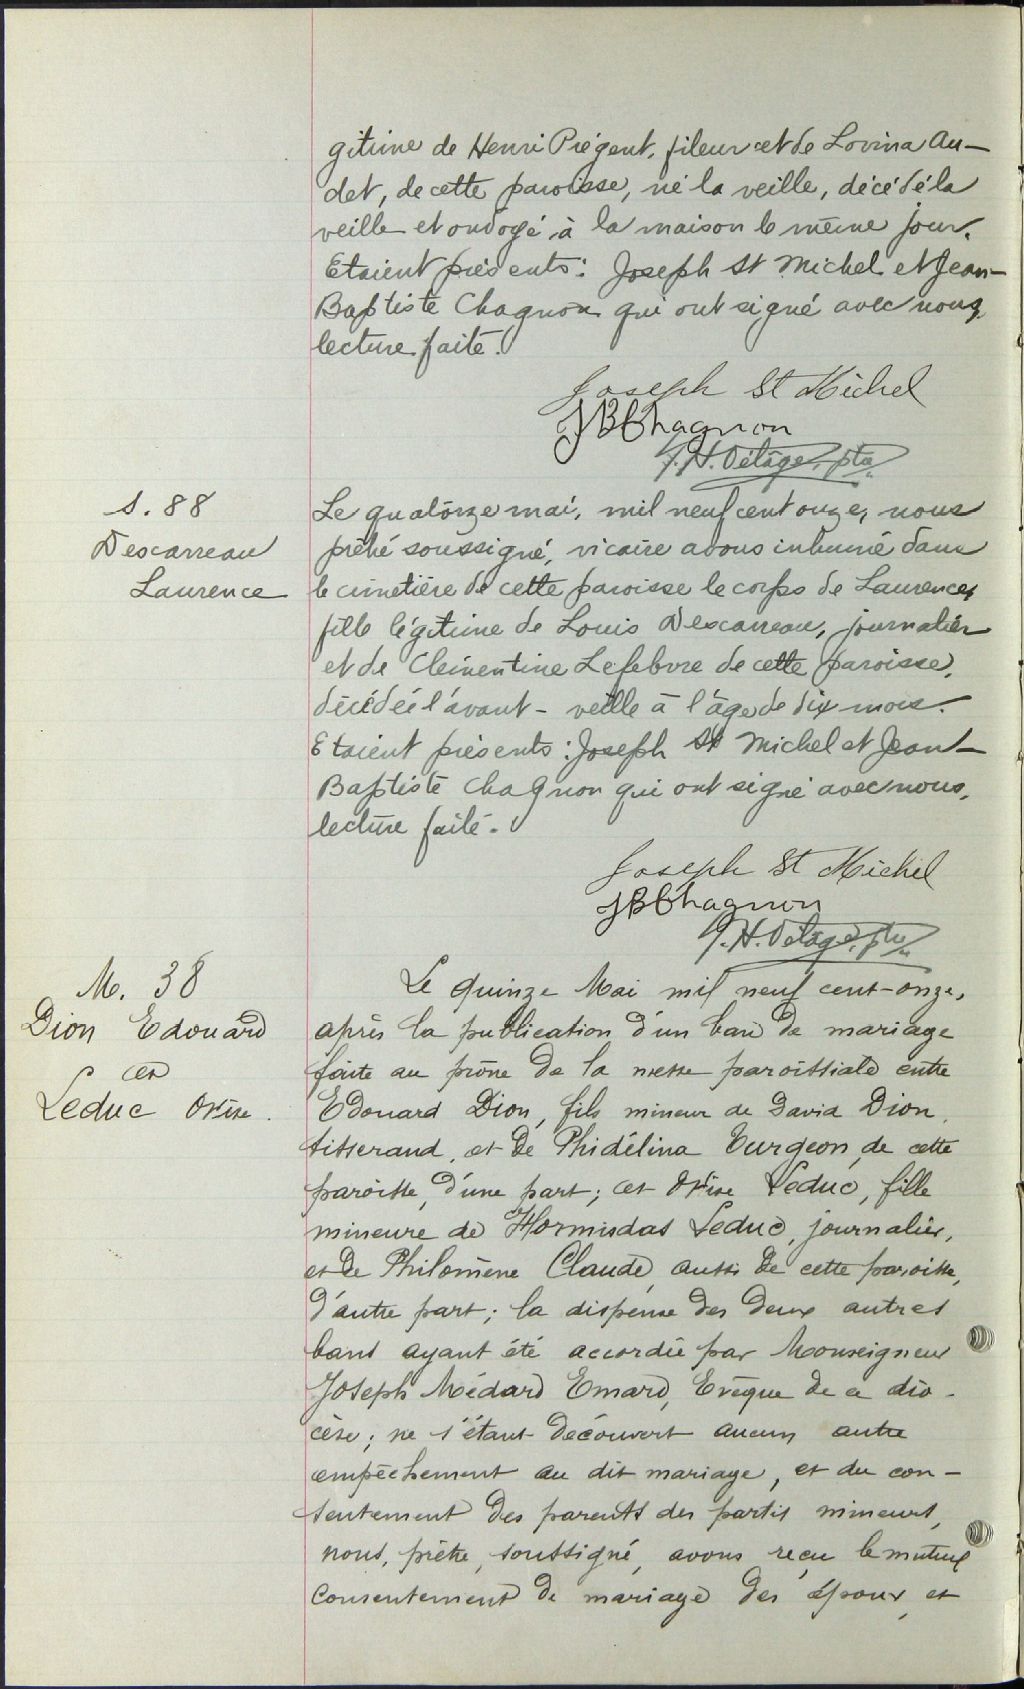 gitime de Henri Prégent, fileur et de Lovina Au-
det, de cette paroisse, né la veille, décédé la
veille et ondoyé à la maison le même jour.
Etaient présents: Joseph St Michel et Jean-
Baptiste Chagnon qui ont signé avec nous,
lecture faite.
Joseph St Michel
JB Chagnon
J. H. Délâge, ptre
S. 88
Descarreau
Laurence
Le quatorze mai, mil neuf cent onze, nous
prêtre soussigné, vicaire avons inhumé dans
le cimetière de cette paroisse le corps de Laurence,
fille légitime de Louis Descarreau, journalier
et de Clémentine Lefebvre de cette paroisse,
décédée l'avant-veille à l'âge de dix mois.
Etaient présents: Joseph St Michel et Jean-
Baptiste Chagnon qui ont signé avec nous,
lecture faite.
Joseph St Michel
JB Chagnon
J. H. Délâge, ptre
M. 38
Dion Edouard
et
Leduc
Le quinze Mai mil neuf cent-onze,
après la publication d'un ban de mariage
faite au prône de la messe paroissiale entre
Edouard Dion, fils mineur de David Dion,
tisserand, et de Phidélina Turgeon, de cette
paroisse, d'une part; et Leduc, fille
mineure de Hormisdas Leduc, journalier,
et de Philomène Claude, aussi de cette paroisse,
d'autre part; la dispense des deux autres
bans ayant été accordée par Monseigneur
Joseph Médard Emard, Evêque de ce dio-
cèse; ne s'étant découvert aucun autre
empêchement au dit mariage, et du con-
sentement des parents des partis mineurs,
nous, prêtre, soussigné, avons reçu le mutuel
consentement de mariage des époux, et